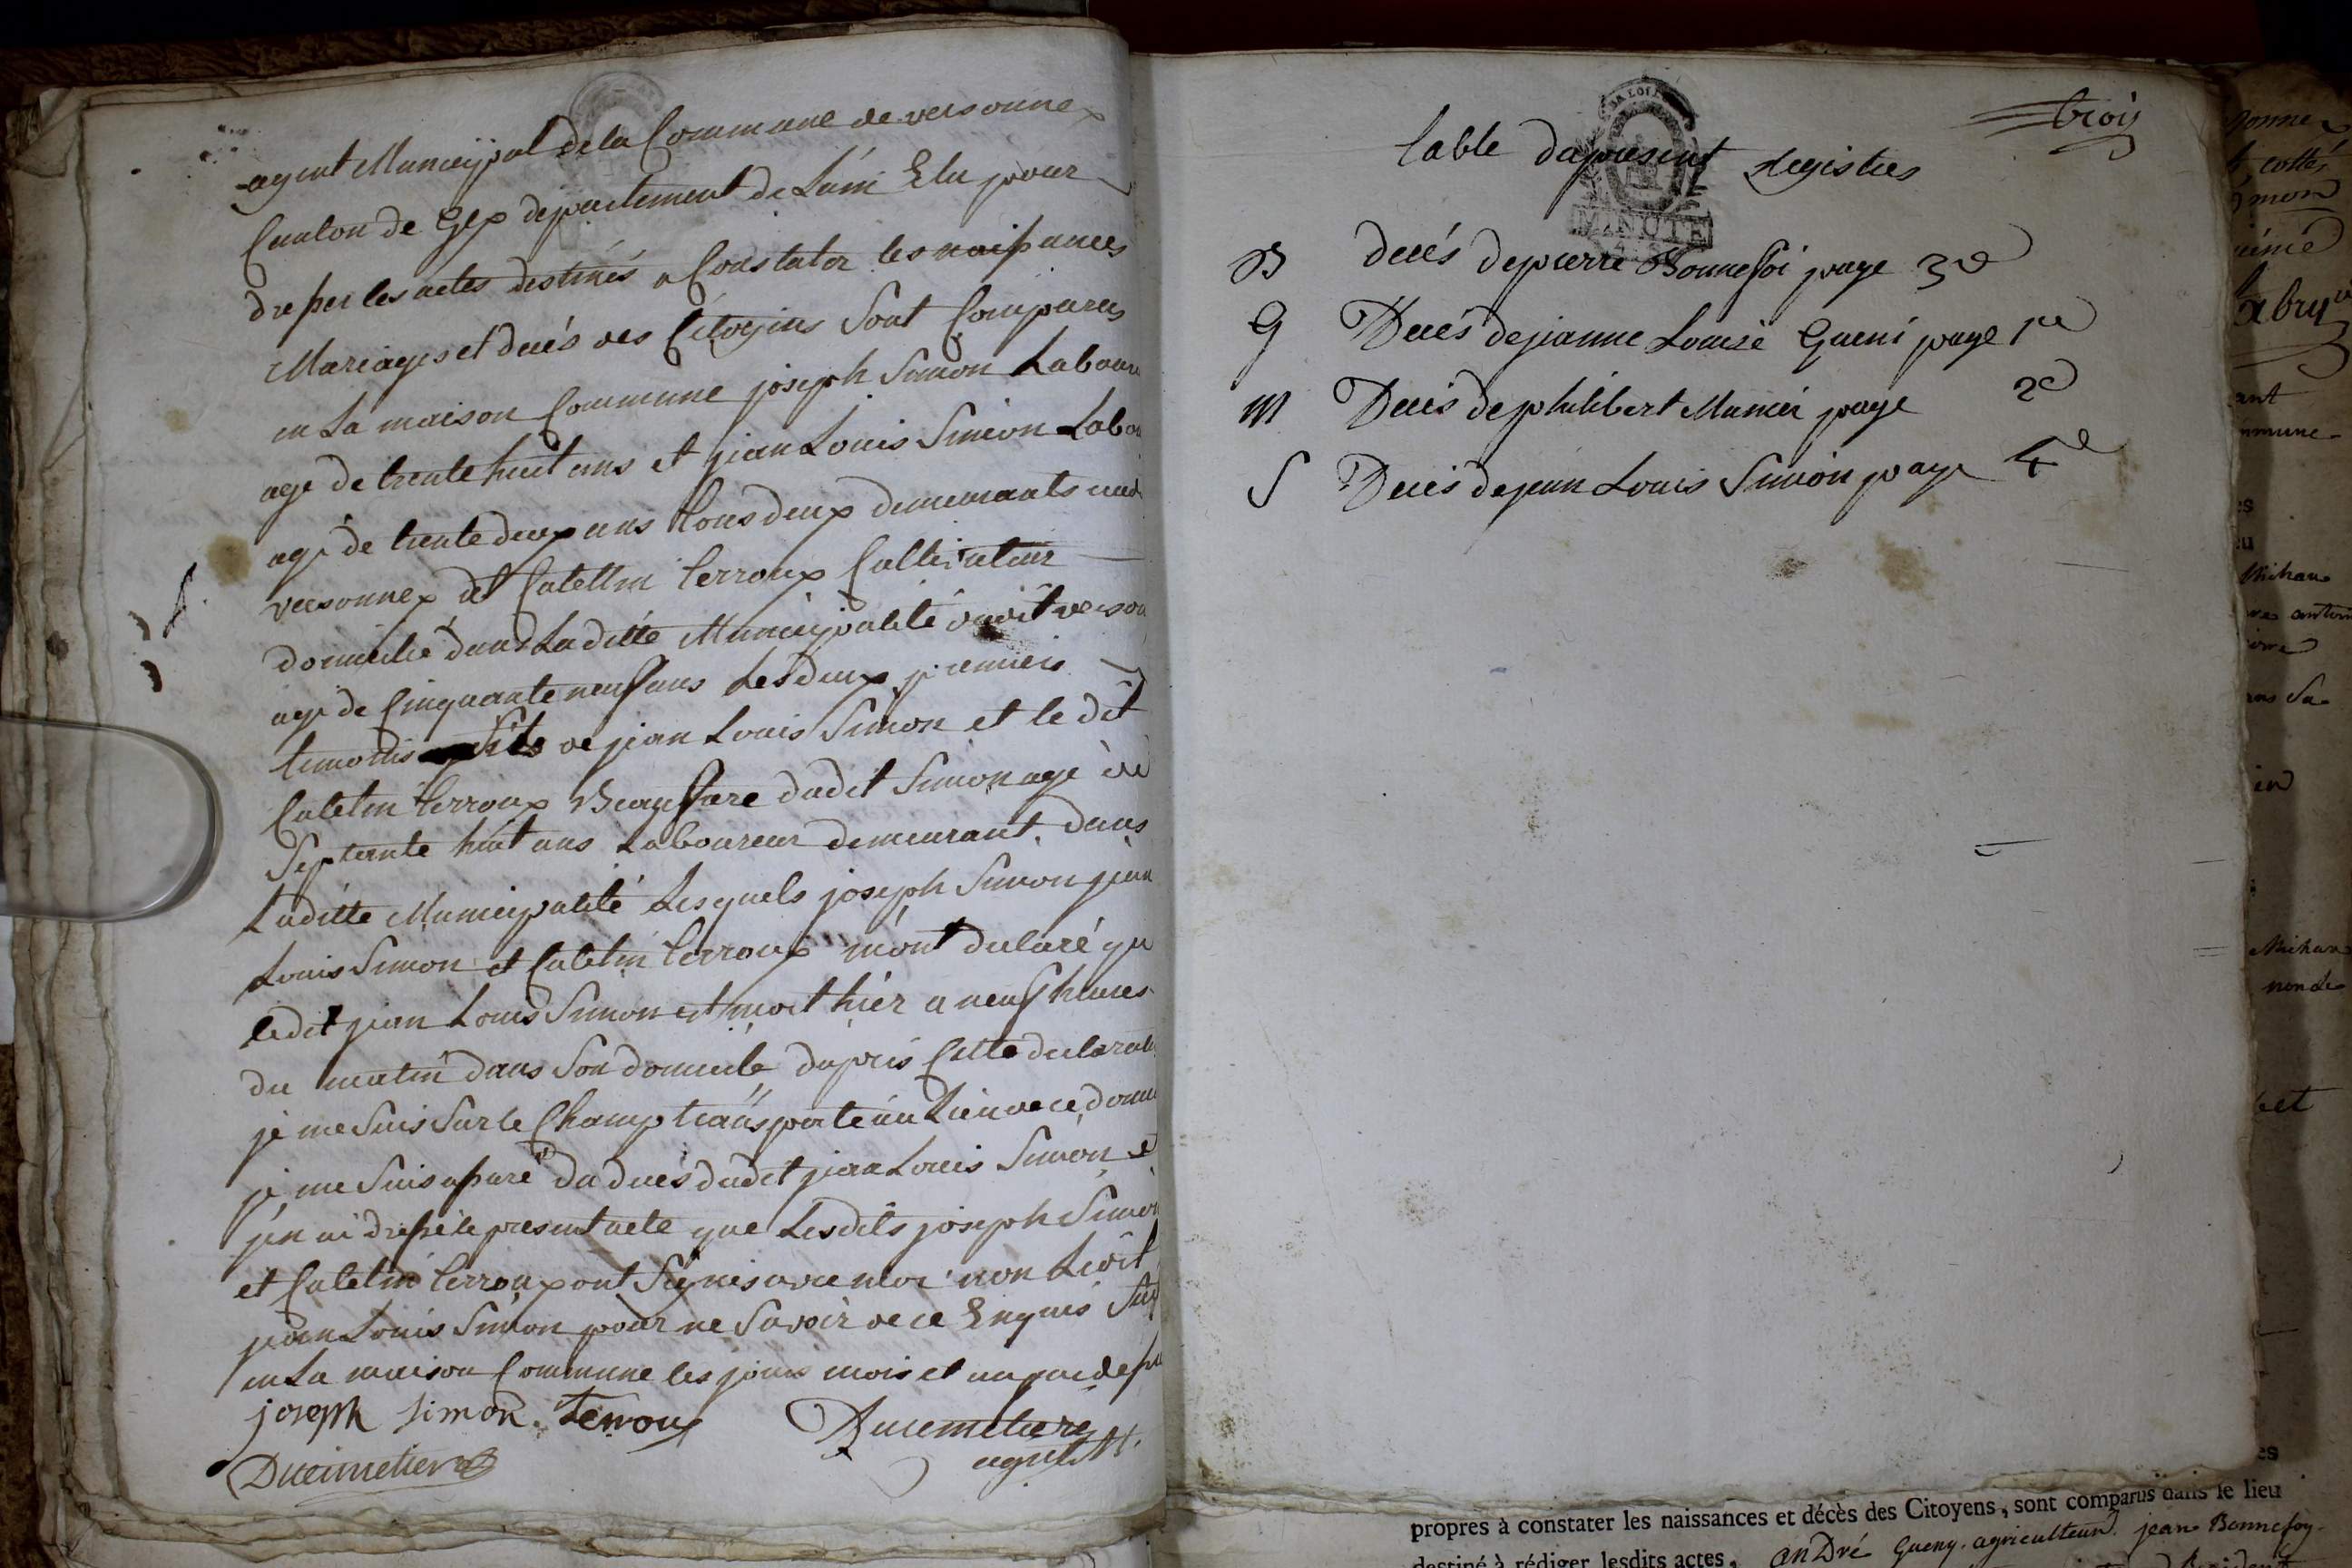 agent Municipal de la Commune de versonnex
Canton de Gex departement de Lain Elu pour
dresser les actes destinés a Constater les naissances
Mariages et decés des Citoyins Sont Comparus
en La maison Commune joseph Simon Labour
age de trente huit ans et jean Louis Simeon Labou
agé de trente deux ans tous deux demeurants
versonnex et Catellin terroux Cultivateur
domicilié dans La ditte Municipalité
agé de Cinquante neuf ans Les deux premiers
fils de jean Louis Simon et le dit
Catelin terroux Beaufrare dudit Simon agé de
Septante huit ans Laboureur demeurant dans
Laditte Municipalité Lesquels joseph Simon jean
Louis Simon et Catelin terroux m'ont declaré qu
ledit jean Louis Simon est mort hiér a neuf heures
du matin dans Son domicile dapres Cette declarati
je me Suis Sur le Champ transporté au Lieu de ce domi
je me Suis assuré du deces dudit jean Louis Simon e
jen ai dressé le present acte que Lesdits joseph Simon
et Catelin terroux ont Signés avec moi non Ledit
jean Louis Simon pour ne Savoir de ce Enquis
en La maison Commune les jours mois et an
joseph simon. Terroux Ducimetiere
Ducimetiere agent M.
4.
trois
table du present Registres
LA LOI
MINUTE
B decés de pierre Bonnefoi page 3e
G Decés de jeanne Louise Gueni page 1re
M Decés de philibert Munier page 2e
S Decés de jean Louis Simon page 4e
propres à constater les naissances et décès des Citoyens, sont comparus dans le lieu
destiné à rédiger lesdits actes, andré Gueny agriculteur. jean Bonnefoy